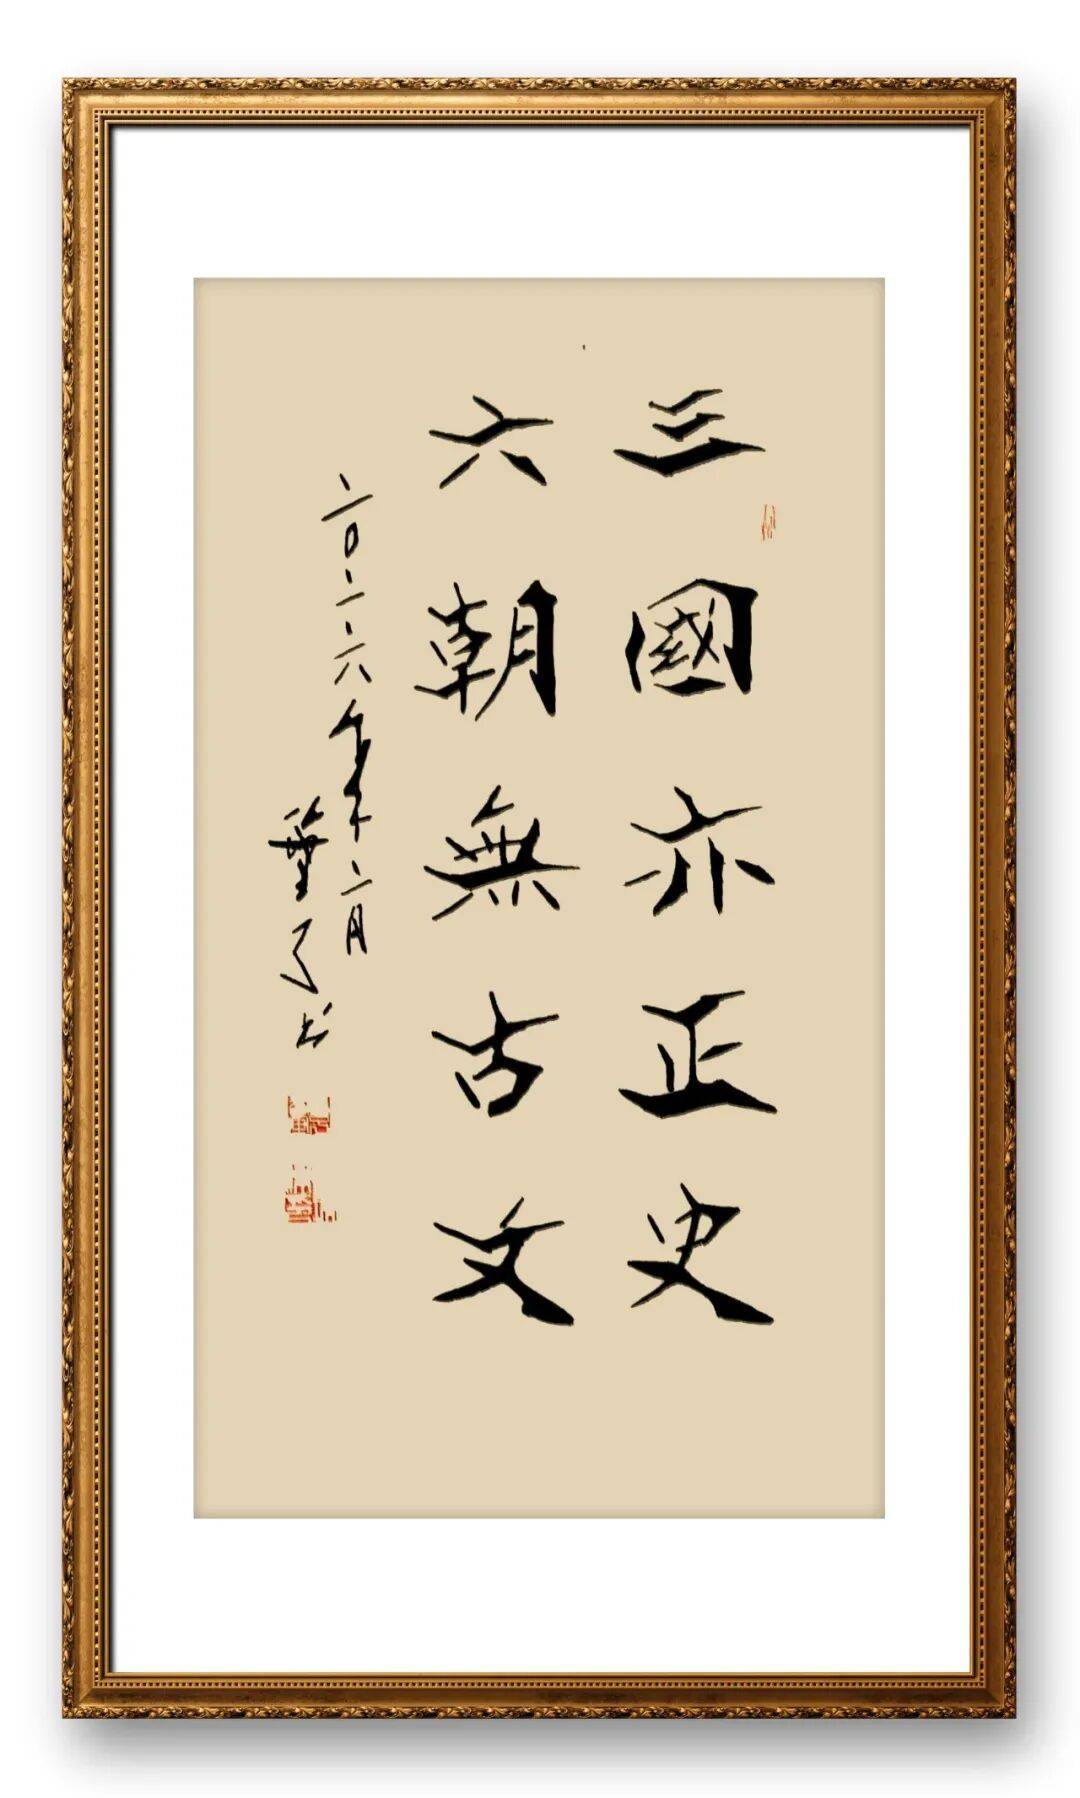 三國亦正史
六朝無古文
二〇二六年二月